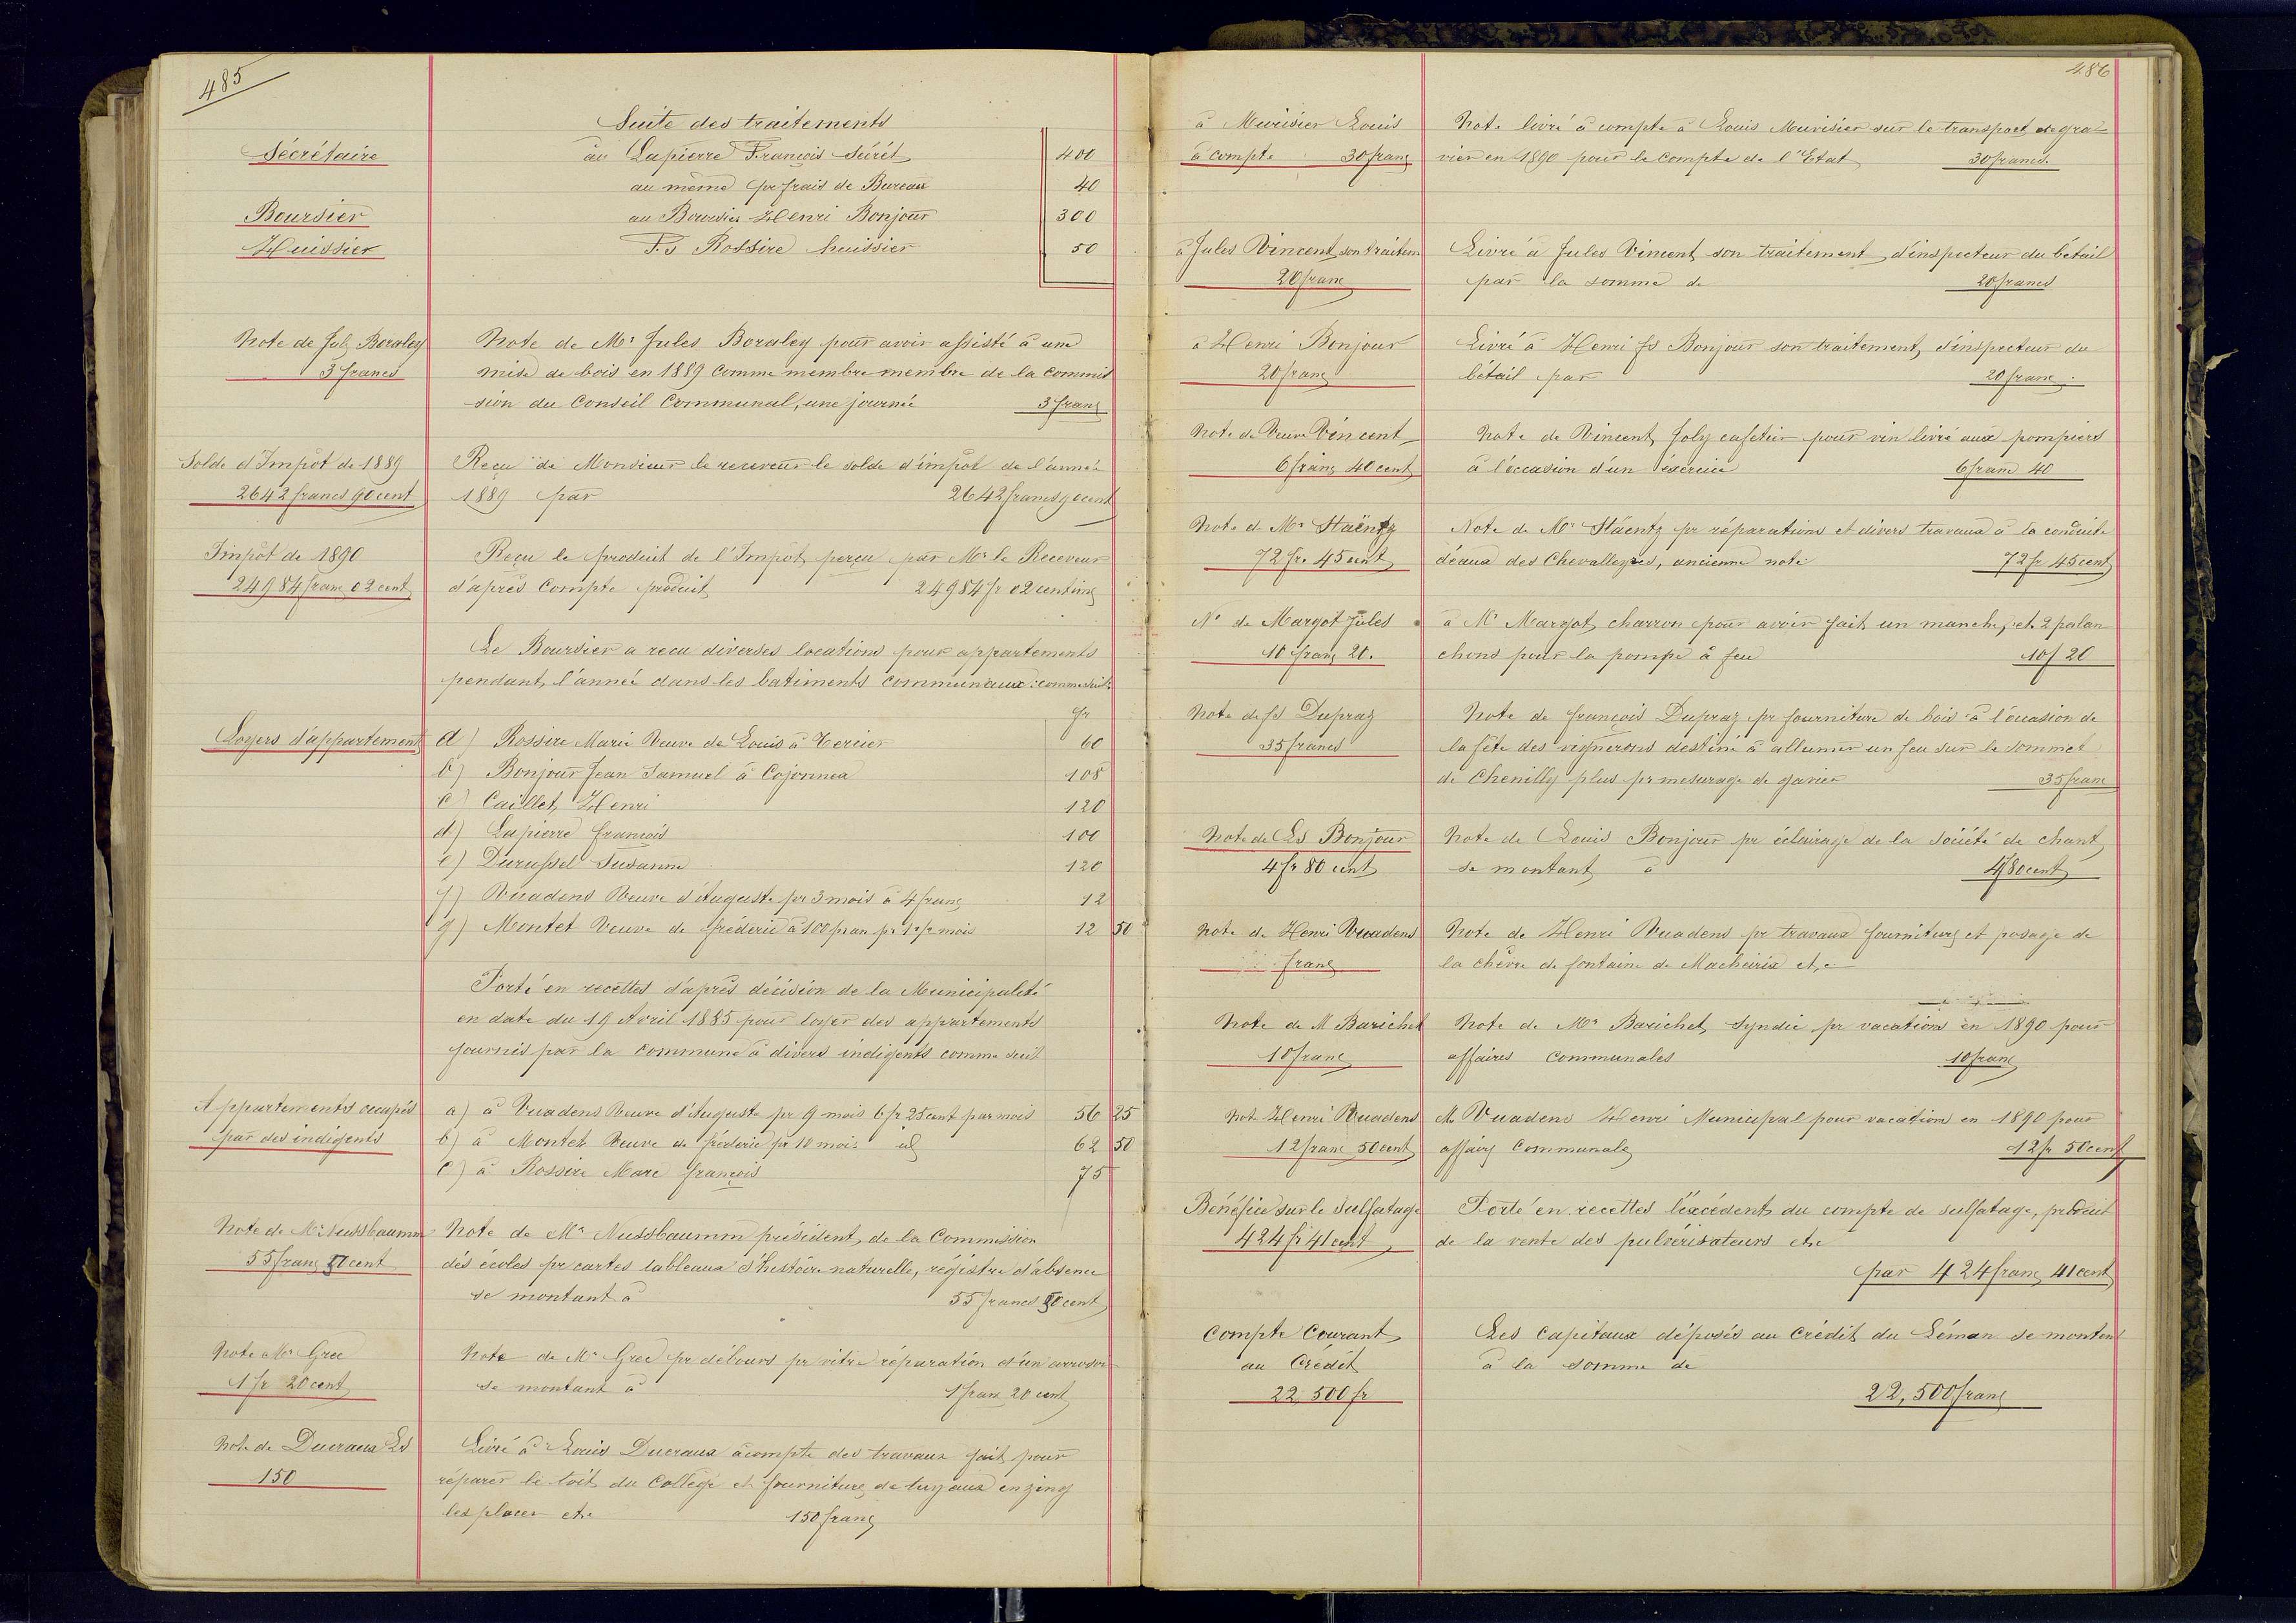 485
Suite des traitements
Sécrétaire au Lapierre François Sécrét 400
au même pr frais de Bureau 40
Boursier au Boursier Henri Bonjour 300
Huissier Fs Rossire huissier 50
Note de Jul Boraley Note de Mr Jules Boraley pour avoir assisté à une
3 francs mise de bois en 1889 comme membre membre de la commis
sion du Conseil Communal, une journée 3 franc
Solde d'Impôt de 1889 Reçu de Monsieur le receveur le solde d'impôt de l'année
2642 francs 90 cent 1889 par 2642 francs 90 cent
Impôt de 1890 Reçu le produit de l'Impôt perçu par Mr le Receveur
24984 franc 02 cent d'après Compte produit 24984 fr 02 centime
Le Boursier a recu diverses locations pour appartements
pendant l'année dans les batiments communaux: comme suit
fr
Loyers d'appartement a) Rossire Marie Veuve de Louis à Tercier 60
b) Bonjour Jean Samuel à Cojonnex 108
c) Caillet Henri 120
d) Lapierre françois 100
e) Durussel Susanne 120
f) Vuadens Veuve d'Auguste pr 3 mois à 4 franc 12
g) Montet Veuve de fréderic à 100 fr an pr 1 1/2 mois 12 50
Porté en recettes d'après décision de la Municipalité
en date du 19 Avril 1885 pour loyer des appartements
fournis par la commune à divers indigents comme suit
Appartements occupés a) à Vuadens Veuve d'Auguste pr 9 mois 6 fr 25 cent par mois 56 25
par des indigents b) à Montet Veuve de fréderic pr 10 mois id 62 50
c) à Rossire Marc françois 75
Note de Mr Nussbaumm Note de Mr Nussbaumm président de la Commission
55 franc 50 cent des écoles pr cartes tableaux d'histoire naturelle, régistre d'absence
se montant à 55 francs 50 cent
Note Mr Grec Note de Mr Grec pr détours pr vitre réparation d'un arrosoir
1 fr 20 cent se montant à 1 franc 20 cent
Note de Ducraux Ls Livré à Louis Ducraux acompte des travaux fait pour
150 réparer le toit du Collège et fourniture de tuyaux en zing
les placer etc 150 franc
486
à Muvisier Louis Note livré à compte à Louis Muvisier sur le transport de gra-
à compte 30 franc vier en 1890 pour le compte de l'Etat 30 francs.
à Jules Vincent son traitem Livré à Jules Vincent son traitement d'inspecteur du bétail
20 franc par la somme de 20 francs
à Henri Bonjour Livré à Henri fs Bonjour son traitement d'inspecteur du
20 franc bétail par 20 franc.
Note de Veuve Vincent Note de Vincent Joly cafetier pour vin livré aux pompiers
6 franc 40 cent à l'occasion d'un exercice 6 franc 40
Note d Mr Stäentz Note de Mr Stäentz pr réparations et divers travaux à la conduite
72 fr. 45 cent d'eaux des Chevalleyres, ancienne note 72 fr 45 cent
Ne de Margot Jules à Mr Margot charron pour avoir fait un manche, et 2 palan
10 franc 20. chons pour la pompe à feu 10f 20
Note de fs Dupraz Note de françois Dupraz pr fourniture de bois à l'occasion de
35 francs la fête des vignerons destiné à allumer un feu sur le sommet
de Chenilly plus pr mesurage de gravier 35 franc
Note de Ls Bonjour Note de Louis Bonjour pr éclairage de la Société de chant
4 fr 80 cent se montant à 4f 80 cent
Note de Henri Vuadens Note de Henri Vuadens pr travaux fournitures et posage de
franc la chèvre de fontaine de Macheirix etc
Note de M Barichet Note de Mr Barichet, Syndic pr vacations en 1890 pour
10 franc affaires communales 10 franc
Not Henri Vuadens Mr Vuadens Henri Municipal pour vacations en 1890 pour
12 franc 50 cent affaires Communales 12 fr 50 cent
Bénéfice sur le Sulfatage Porté en recettes l'éxcédent du compte de sulfatage, produit
424 fr 41 cent de la vente des pulvérisateurs etc
par 424 franc 41 cent
Compte Courant Les Capitaux déposés au Crédit du Léman se montent
au Crédit à la somme de
22,500 fr 22,500 franc